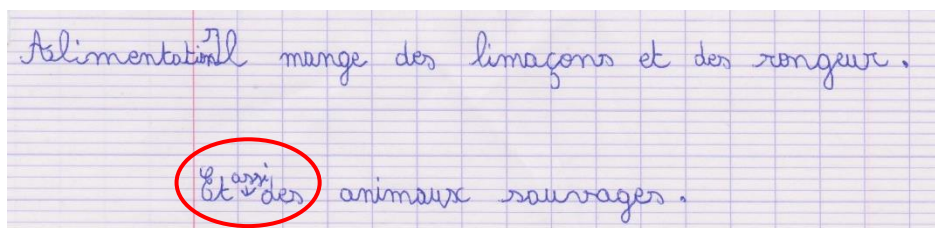 Alimentation Il mange des limaçons et des rongeur.
Et assi des animaux sauvages.